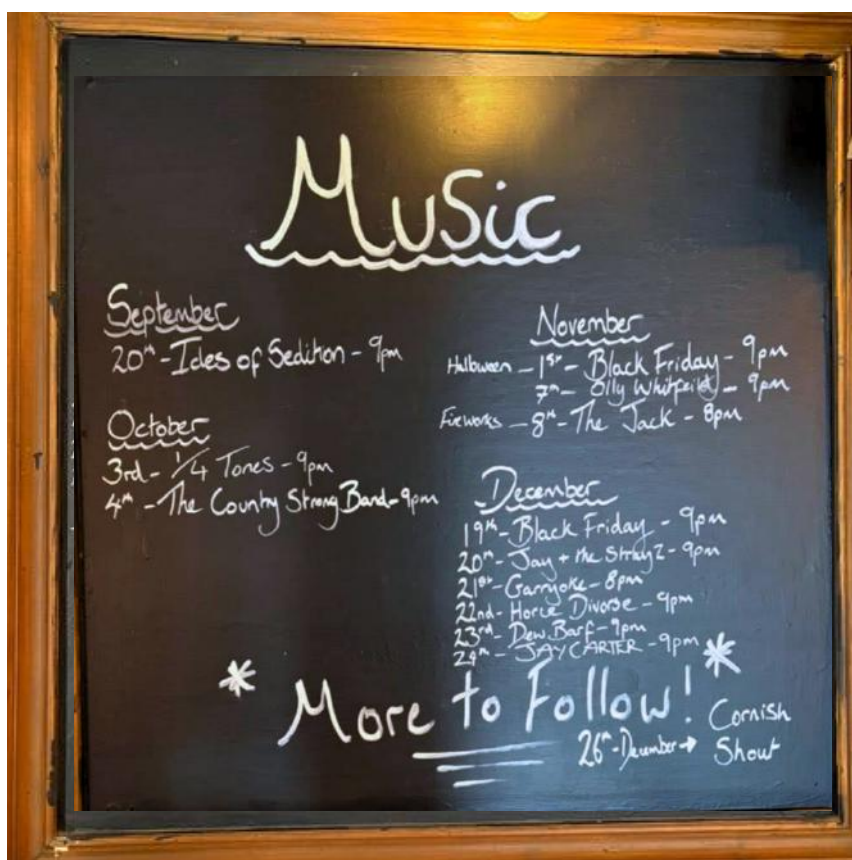 Music
September
20th - Ides of Sedition - 9pm
October
3rd - 1/4 Tones - 9pm
4th - The Country Strong Band - 9pm
November
Halloween - 1st - Black Friday - 9pm
7th - Olly Whitfeild - 9pm
Fireworks - 8th - The Jack - 8pm
December
19th - Black Friday - 9pm
20th - Jay + the Strayz - 9pm
21st - Garryoke - 8pm
22nd - Horce Divorse - 9pm
23rd - Dew Barf - 9pm
24th - JAY CARTER - 9pm
* More to Follow! *
26th - December → Cornish Shout